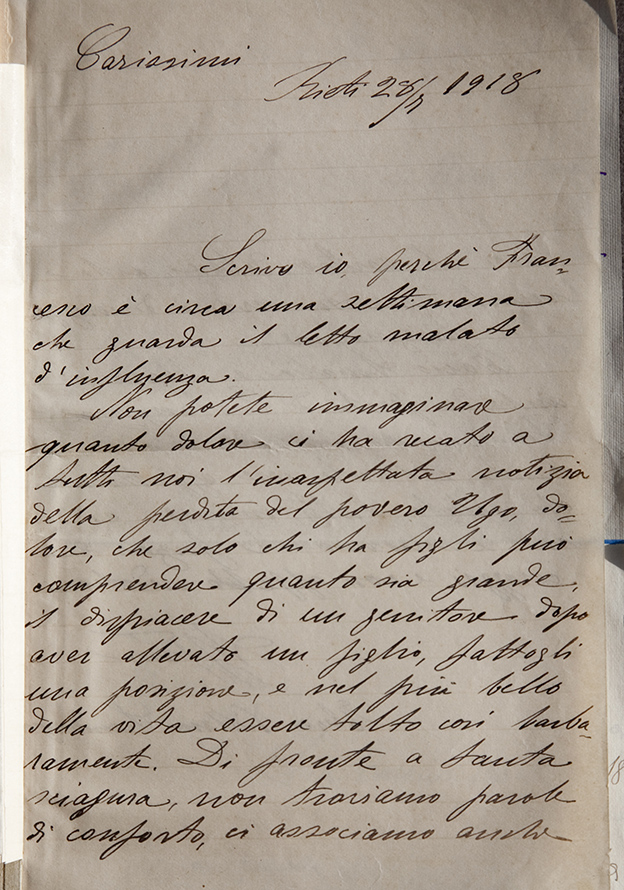 Carissimi
Rieti 28/7 1918
Scrivo io, perchè Fran=
cesco è circa una settimana
che guarda il letto malato
d'influenza.
Non potete immaginare
quanto dolore ci ha recato a
tutti noi l'inaspettata notizia
della perdita del povero Ugo, do=
lore, che solo chi ha figli può
comprendere quanto sia grande,
il dispiacere di un genitore dopo
aver allevato un figlio, fattogli
una posizione, e nel più bello
della vita essere tolto così barba=
ramente. Di fronte a tanta
sciagura, non troviamo parole
di conforto, ci associamo anche